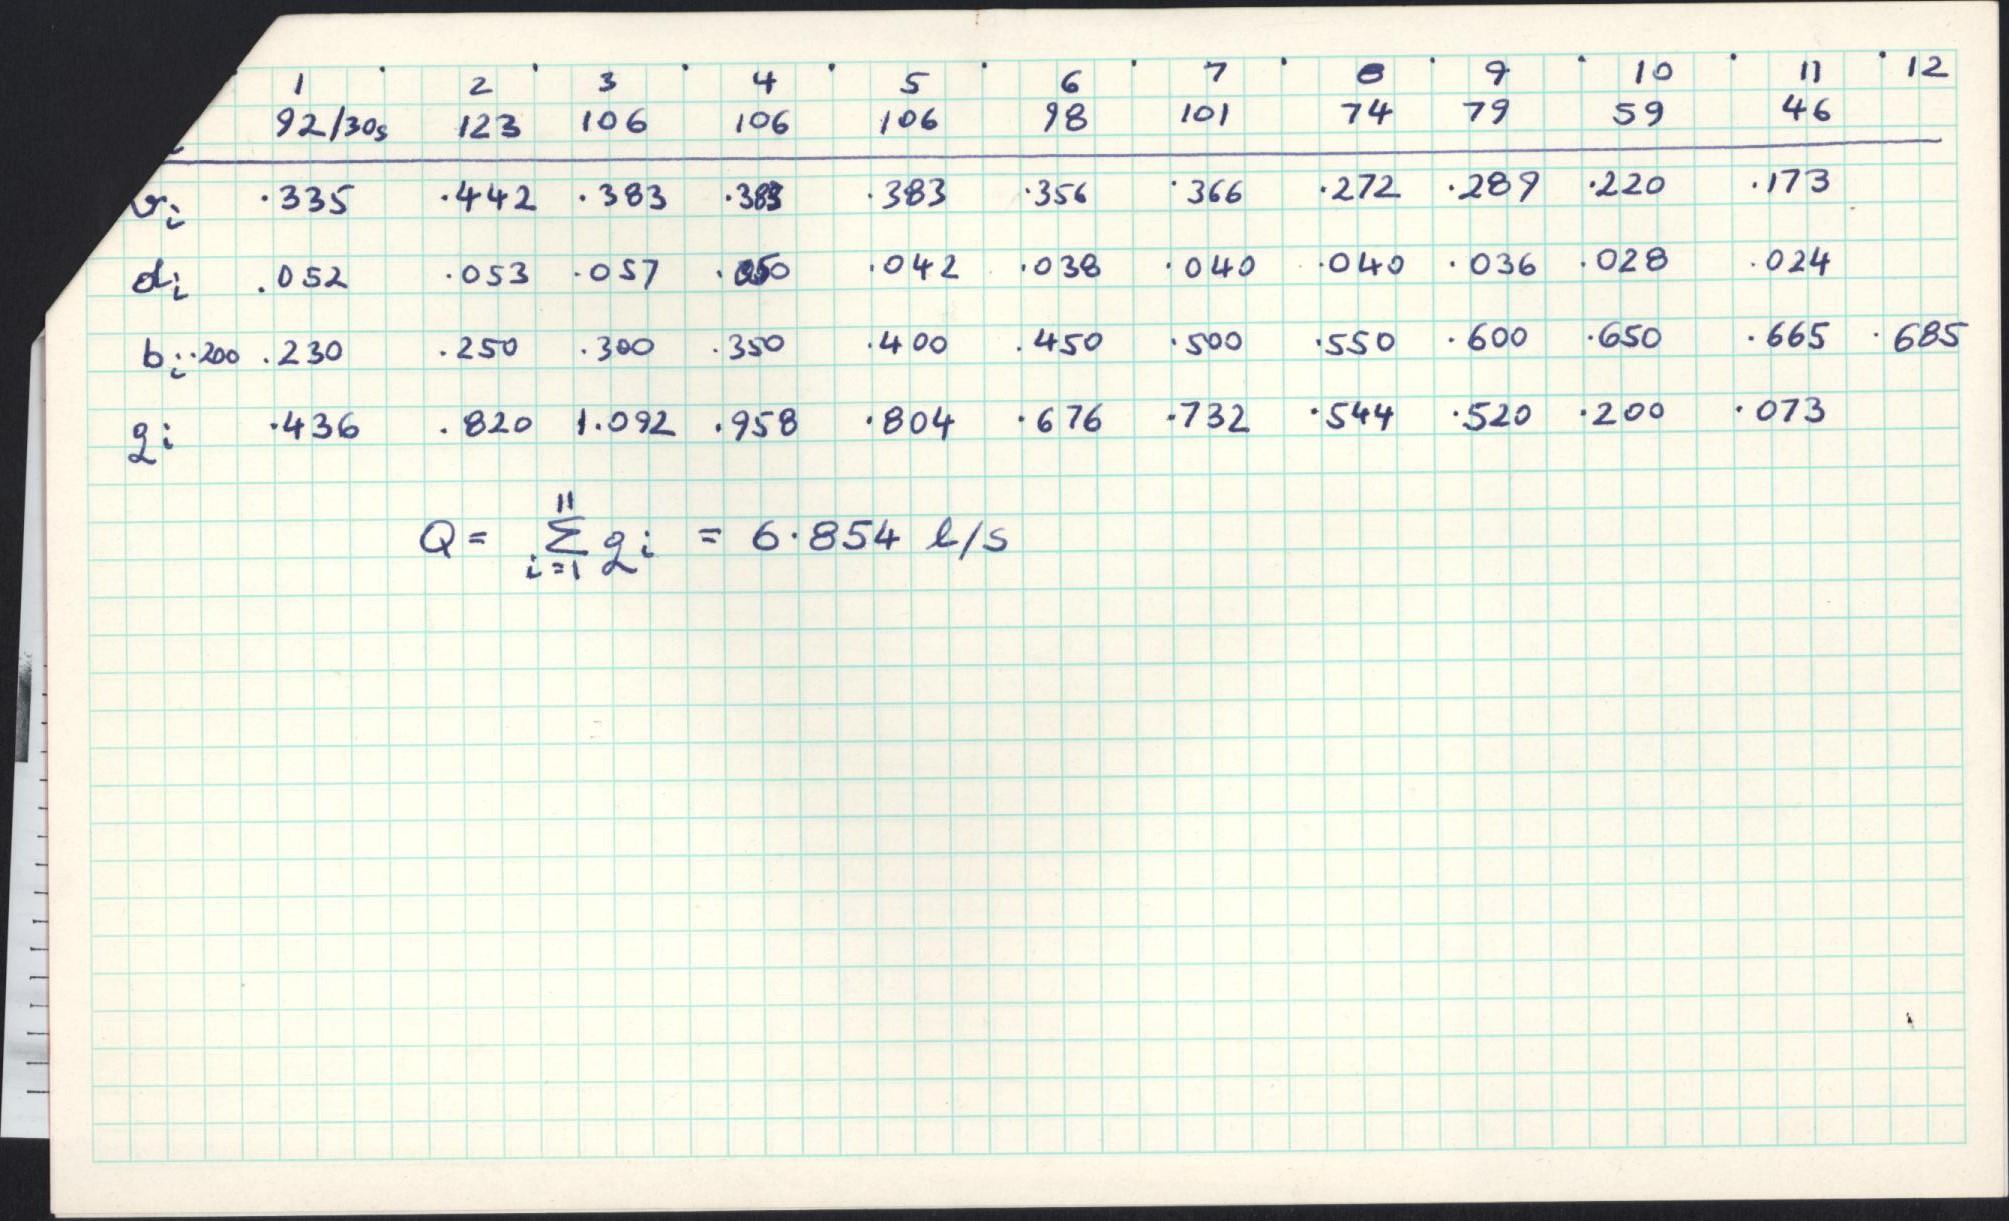 1 2 3 4 5 6 7 8 9 10 11 12
92/30s 123 106 106 106 98 101 74 79 59 46
vi .335 .442 .383 .383 .383 .356 .366 .272 .289 .220 .173
di .052 .053 .057 .050 .042 .038 .040 .040 .036 .028 .024
bi .200 .230 .250 .300 .350 .400 .450 .500 .550 .600 .650 .665 .685
qi .436 .820 1.092 .958 .804 .676 .732 .544 .520 .200 .073
Q = 11 Σ i=1 qi = 6.854 l/s